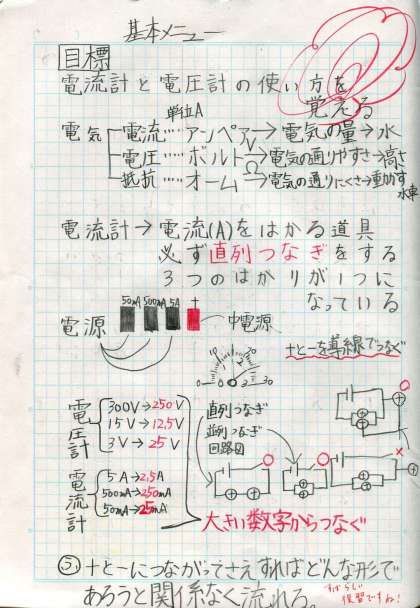 基本メニュー
目標
電流計と電圧計の使い方を
覚える
単位A
電気 電流……アンペア→電気の量→水
V
電圧……ボルト→電気の通りやすさ→高さ
Ω
抵抗……オーム→電気の通りにくさ→動かす
水車
電流計→電流(A)をはかる道具
必ず直列つなぎをする
3つのはかりが1つに
なっている
50mA 500mA 5A +
電源
中電源
+と-を導線でつなぐ
電圧計
300V→250V
15V→12,5V
3V→25V
電流計
5A→2,5A
500mA→250mA
50mA→25mA
直列つなぎ
並列つなぎ
回路図
大きい数字からつなぐ
+と-につながってさえすればどんな形で
あろうと関係なく流れる。
すばらしい
復習ですね!